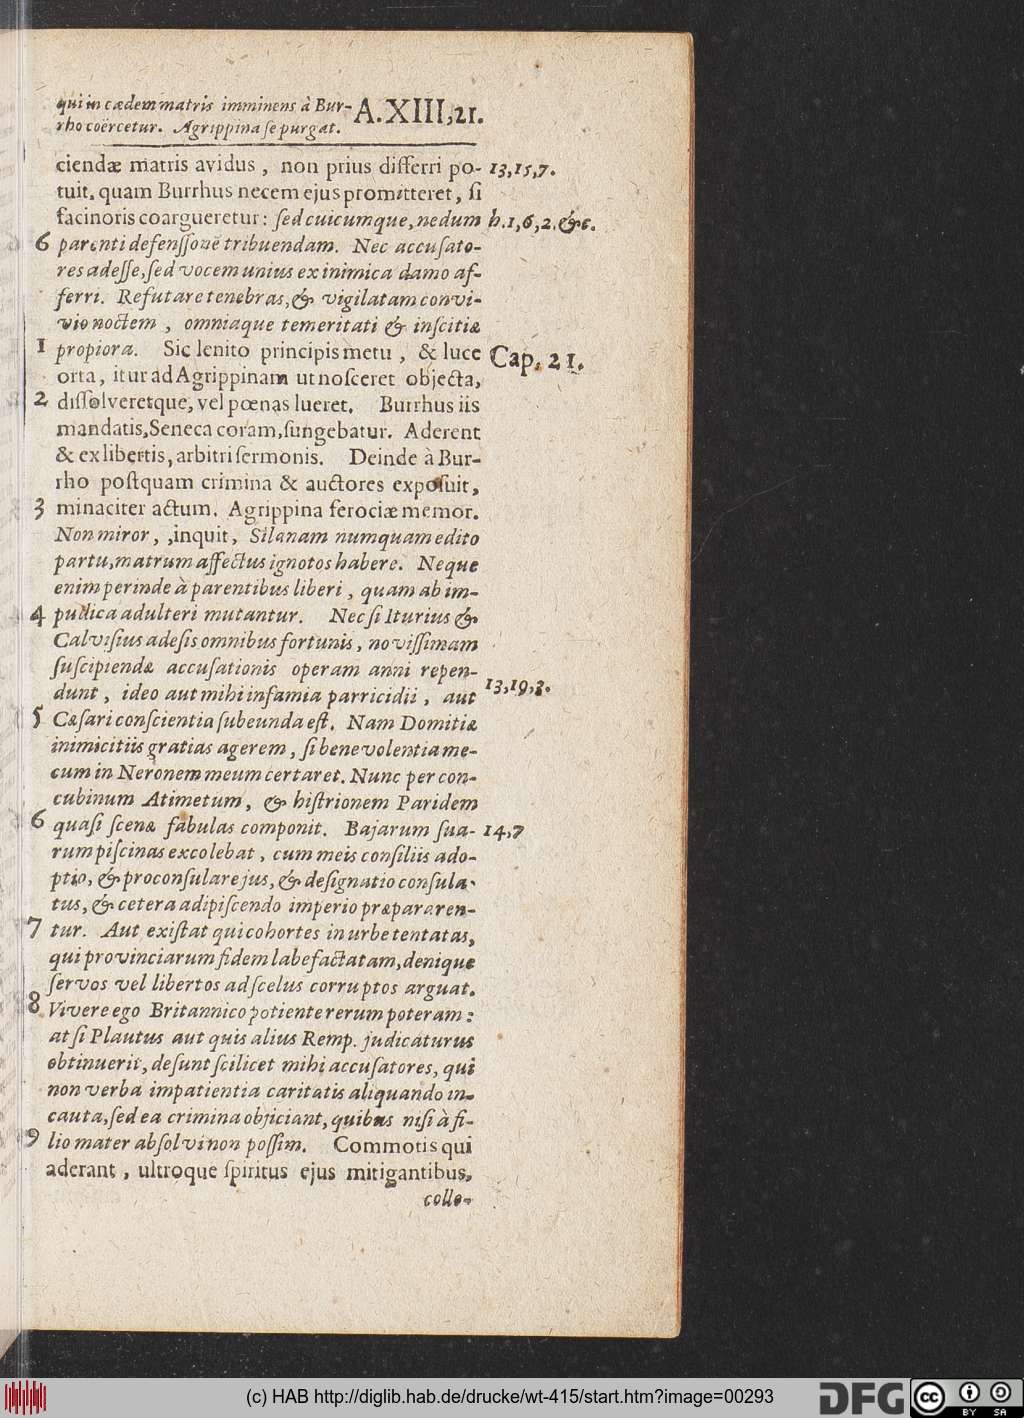 qui in cædem matris imminens à Bur-
rho coërcetur. Agrippina se purgat. A. XIII, 21.
ciendæ matris avidus, non prius differri po- 13, 15, 7.
tuit, quam Burrhus necem ejus promitteret, si
facinoris coargueretur: sed cuicumque, nedum h. 1, 6, 2. &c.
6 parenti defenssonē tribuendam. Nec accusato-
res adesse, sed vocem unius ex inimica damo af-
ferri. Refutare tenebras, & vigilatam convi-
vio noctem, omniaque temeritati & inscitiæ
1 propiora. Sic lenito principis metu, & luce Cap. 21.
orta, itur ad Agrippinam ut nosceret objecta,
2 dissolveretque, vel pœnas lueret. Burrhus iis
mandatis, Seneca coram, fungebatur. Aderent
& ex libertis, arbitri sermonis. Deinde à Bur-
rho postquam crimina & auctores exposuit,
3 minaciter actum. Agrippina ferociæ memor.
Non miror, ,inquit, Silanam numquam edito
partu, matrum affectus ignotos habere. Neque
enim perinde à parentibus liberi, quam ab im-
4 pudica adulteri mutantur. Nec si Iturius &
Calvisius adesis omnibus fortunis, novissimam
suscipiendæ accusationis operam anni repen-
dunt, ideo aut mihi infamia parricidii, aut 13, 19, 3.
5 Cæsari conscientia subeunda est. Nam Domitiæ
inimicitiis gratias agerem, si benevolentia me-
cum in Neronem meum certaret. Nunc per con-
cubinum Atimetum, & histrionem Paridem
6 quasi scenæ fabulas componit. Bajarum sua- 14, 7
rum piscinas excolebat, cum meis consiliis ado-
ptio, & proconsulare jus, & designatio consula-
tus, & cetera adipiscendo imperio præpararen-
7 tur. Aut existat qui cohortes in urbe tentatas,
qui provinciarum fidem labefactatam, denique
servos vel libertos ad scelus corruptos arguat.
8 Vivere ego Britannico potiente rerum poteram:
at si Plautus aut quis alius Remp. judicaturus
obtinuerit, desunt scilicet mihi accusatores, qui
non verba impatientia caritatis aliquando in-
cauta, sed ea crimina objiciant, quibus nisi à fi-
9 lio mater absolvi non possim. Commotis qui
aderant, ultroque spiritus ejus mitigantibus,
collo-
(c) HAB http://diglib.hab.de/drucke/wt-415/start.htm?image=00293
DFG
cc BY SA